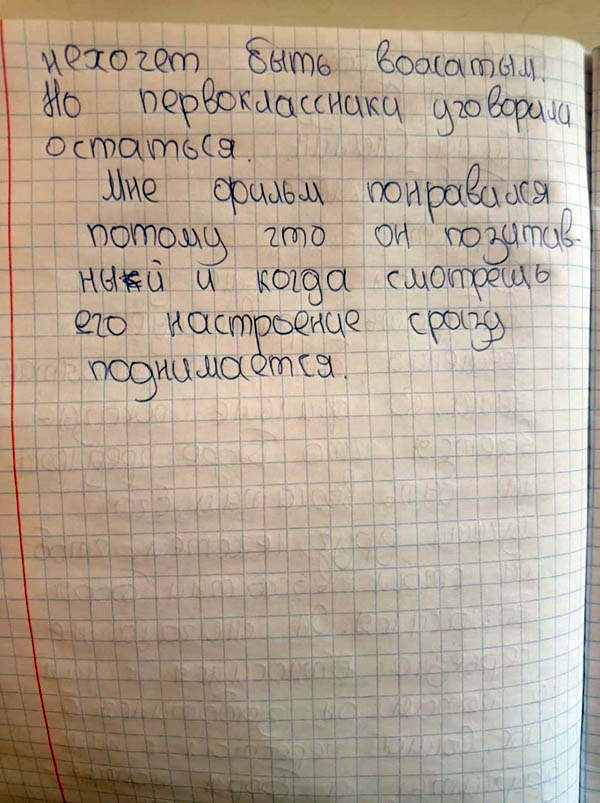 нехочет быть вожатым.
Но первоклассники уговорили
остаться.
Мне фильм понравился
потому что он позитив-
ный и когда смотрешь
его настроение сразу
поднимается.